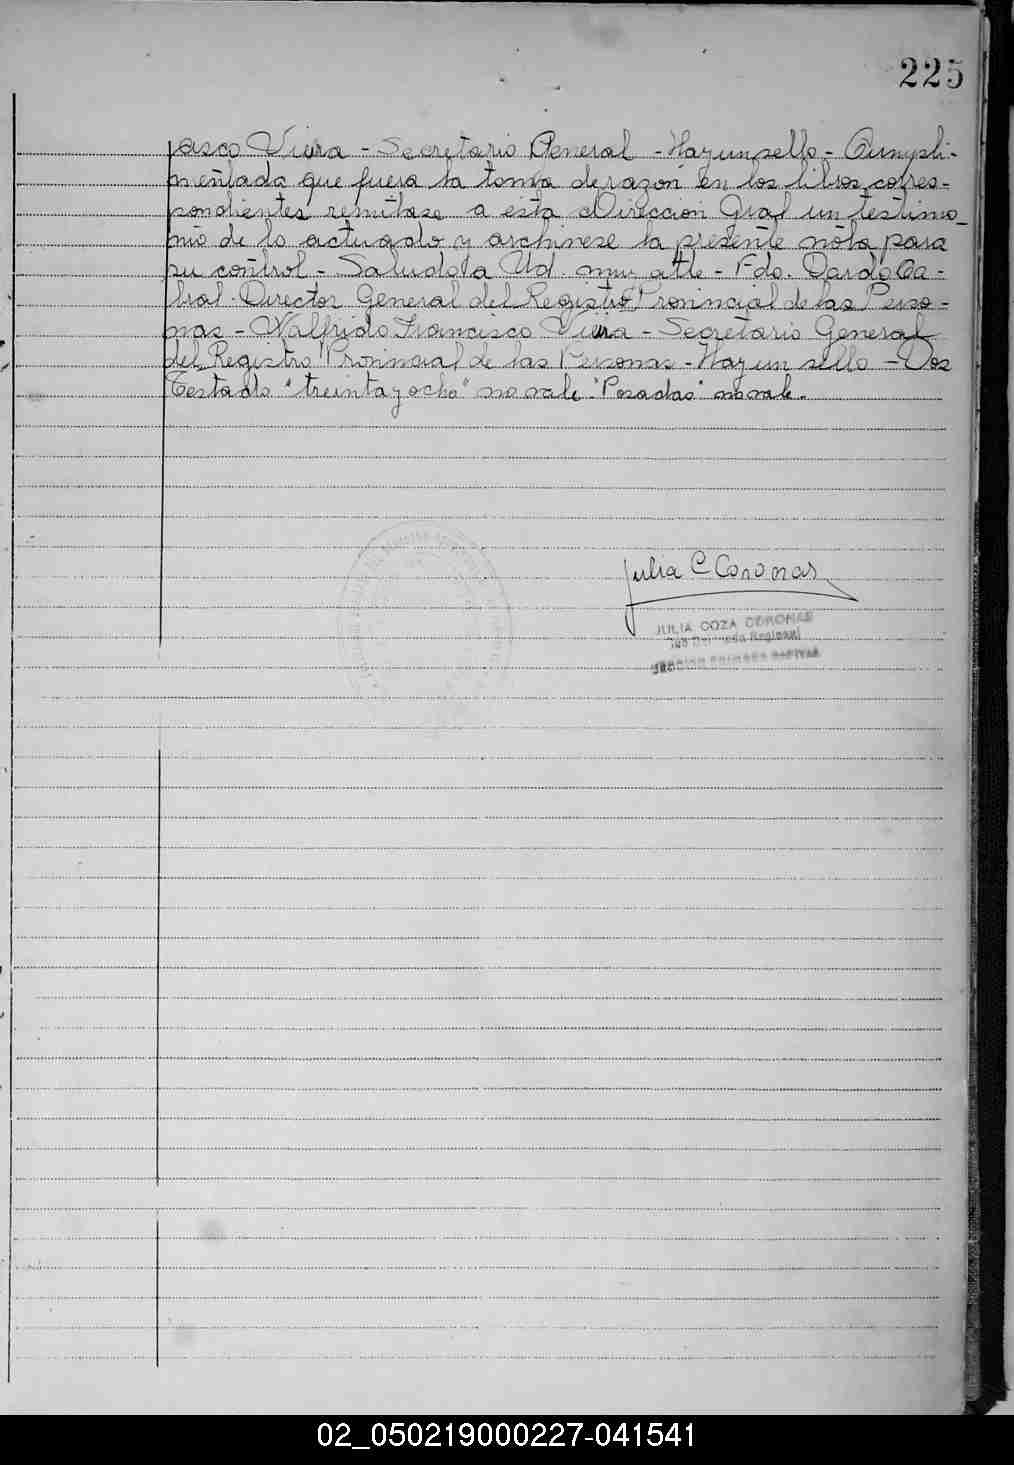 225
casco Viera - Secretario General - Hay un sello - Cumpli-
mentada que fuera la toma de razon en los libros corres-
pondientes remitase a esta Direccion Gral un testimo-
nio de lo actuado y archivese la presente nota para
su control - Saludo a Ud. muy atte - Fdo. Dardo Ca-
bral. Director General del Registro Provincial de las Perso-
nas - Walfrido Francisco Viera - Secretario General
del Registro Provincial de las Personas - Hay un sello - Dos
Testado "treinta y ocho" no vale. "Posadas" no vale.
Julia C Coronas
JULIA COZA CORONAS
Regional
02_050219000227-041541